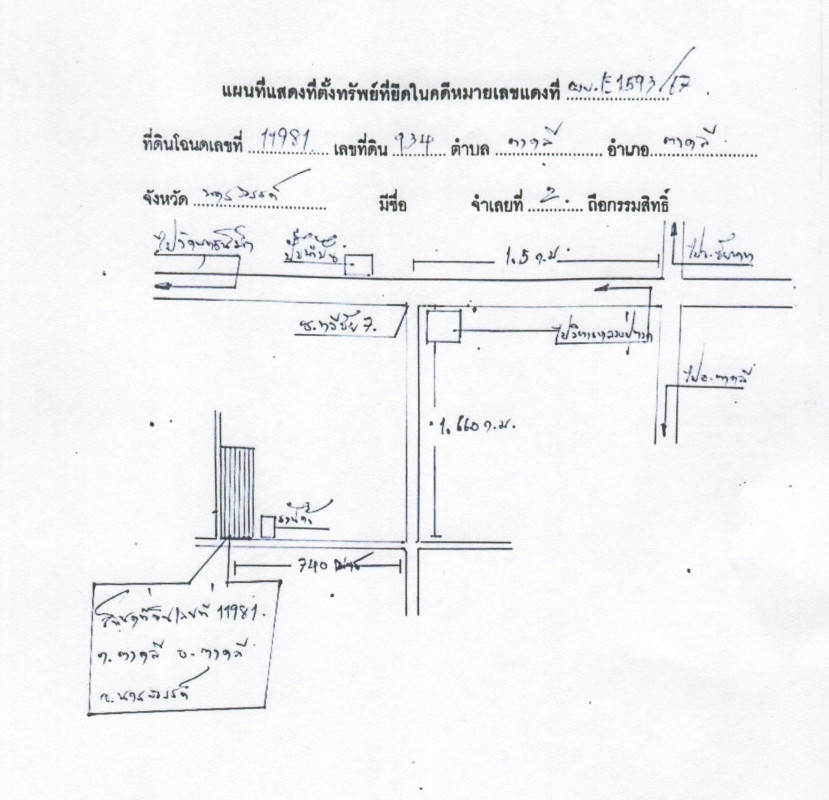 แผนที่แสดงที่ตั้งทรัพย์ที่ยึดในคดีหมายเลขแดงที่ ผบ.E1593/67
ที่ดินโฉนดเลขที่ 11981 เลขที่ดิน 934 ตำบล ตาคลี อำเภอ ตาคลี
จังหวัด นครสวรรค์ มีชื่อ จำเลยที่ 2 ถือกรรมสิทธิ์
1.5 ก.ม.
ไป
ซ.ทวีชัย 7.
ไปวิหารหลวงปู่
ไปอ.ตาคลี
1.660 ก.ม.
ร้านค้า
740 เมตร
โฉนดที่ดินเลขที่ 11981.
ต.ตาคลี อ.ตาคลี
จ.นครสวรรค์